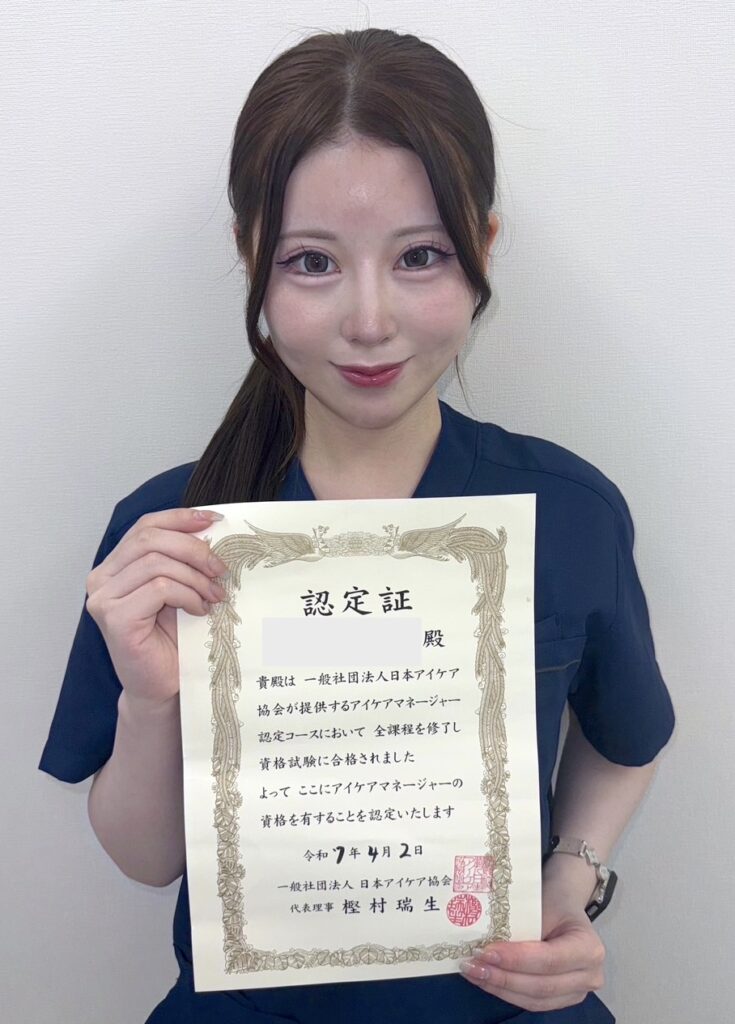 認定証
殿
貴殿は 一般社団法人日本アイケア
協会が提供するアイケアマネージャー
認定コースにおいて 全課程を修了し
資格試験に合格されました
よって ここにアイケアマネージャーの
資格を有することを認定いたします
令和 7 年 4 月 2 日
一般社団法人 日本アイケア協会
代表理事 樫村瑞生